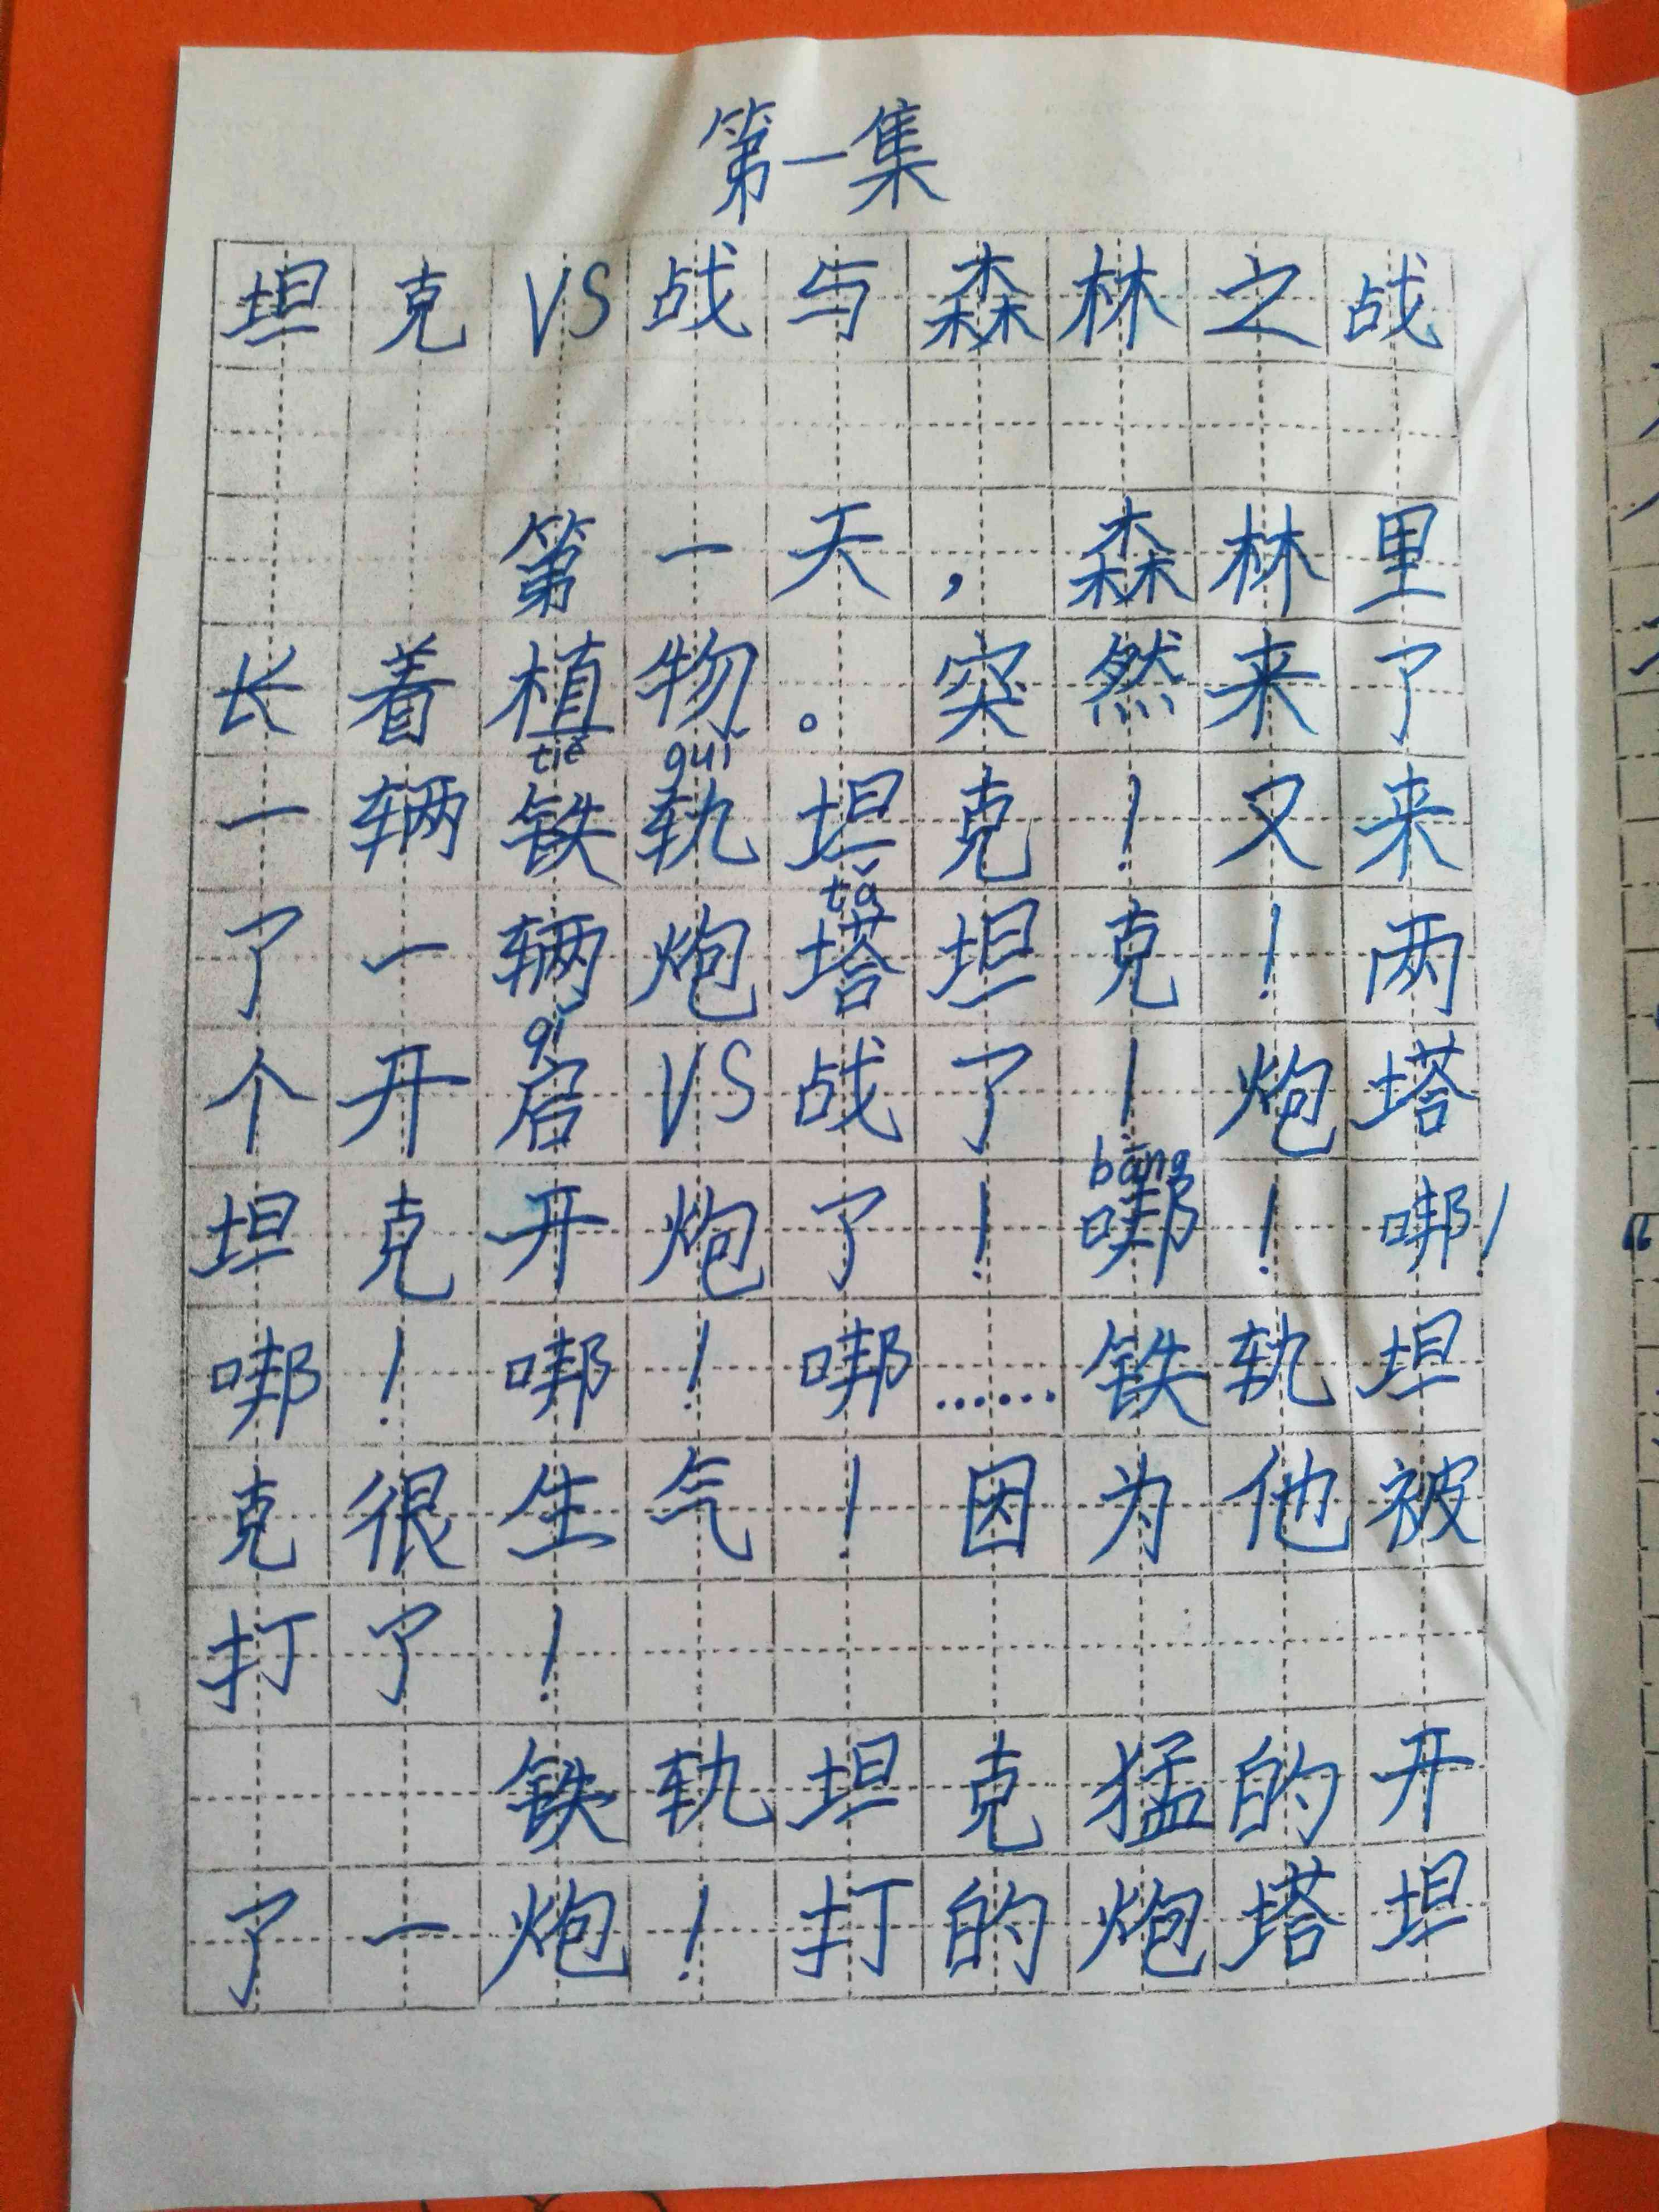 第一集
坦克VS战与森林之战
第一天，森林里
长着植物。突然来了
tiě guǐ
一辆铁轨坦克！又来
tǎ
了一辆炮塔坦克！两
qǐ
个开启VS战了！炮塔
bāng
坦克开炮了！啷！啷！
啷！啷！啷……铁轨坦
克很生气！因为他被
打了！
铁轨坦克猛的开
了一炮！打的炮塔坦